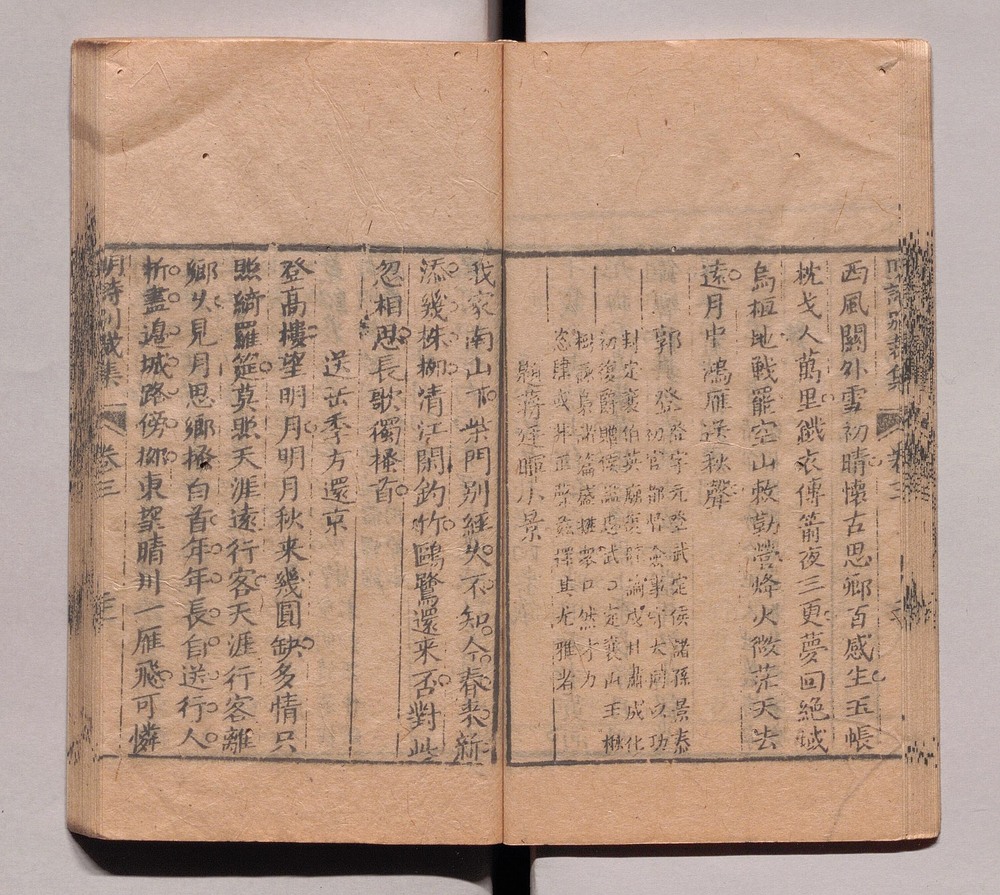 西風關外雪初晴懷古思鄉百感生玉帳
枕戈人萬里鐵衣傳箭夜三更夢回絕域
烏桓地戰罷空山敕勒營烽火微茫天去
遠月中鴻雁送秋聲
郭登
登字元登武定侯諸孫景泰
初官都督僉事守大同以功
封定襄伯英廟復辟論戍甘肅成化
初復爵贈侯諡忠武
定襄山王
樹
篇盛推
然才力
恣肆或非正聲茲擇其尤雅者
題蔣廷暉小景
我家南山下柴門別經久不知今春來新
添幾株柳清江閒釣竹鷗鷺還來否對此
忽相思長歌獨搔首
送岳季方還京
登高樓望明月明月秋來幾圓缺多情只
照綺羅筵莫照天涯遠行客天涯行客離
鄉久見月思鄉搔白首年年長自送行人
折盡邊城路傍柳東望晴川一雁飛可憐
明詩別裁集
卷三